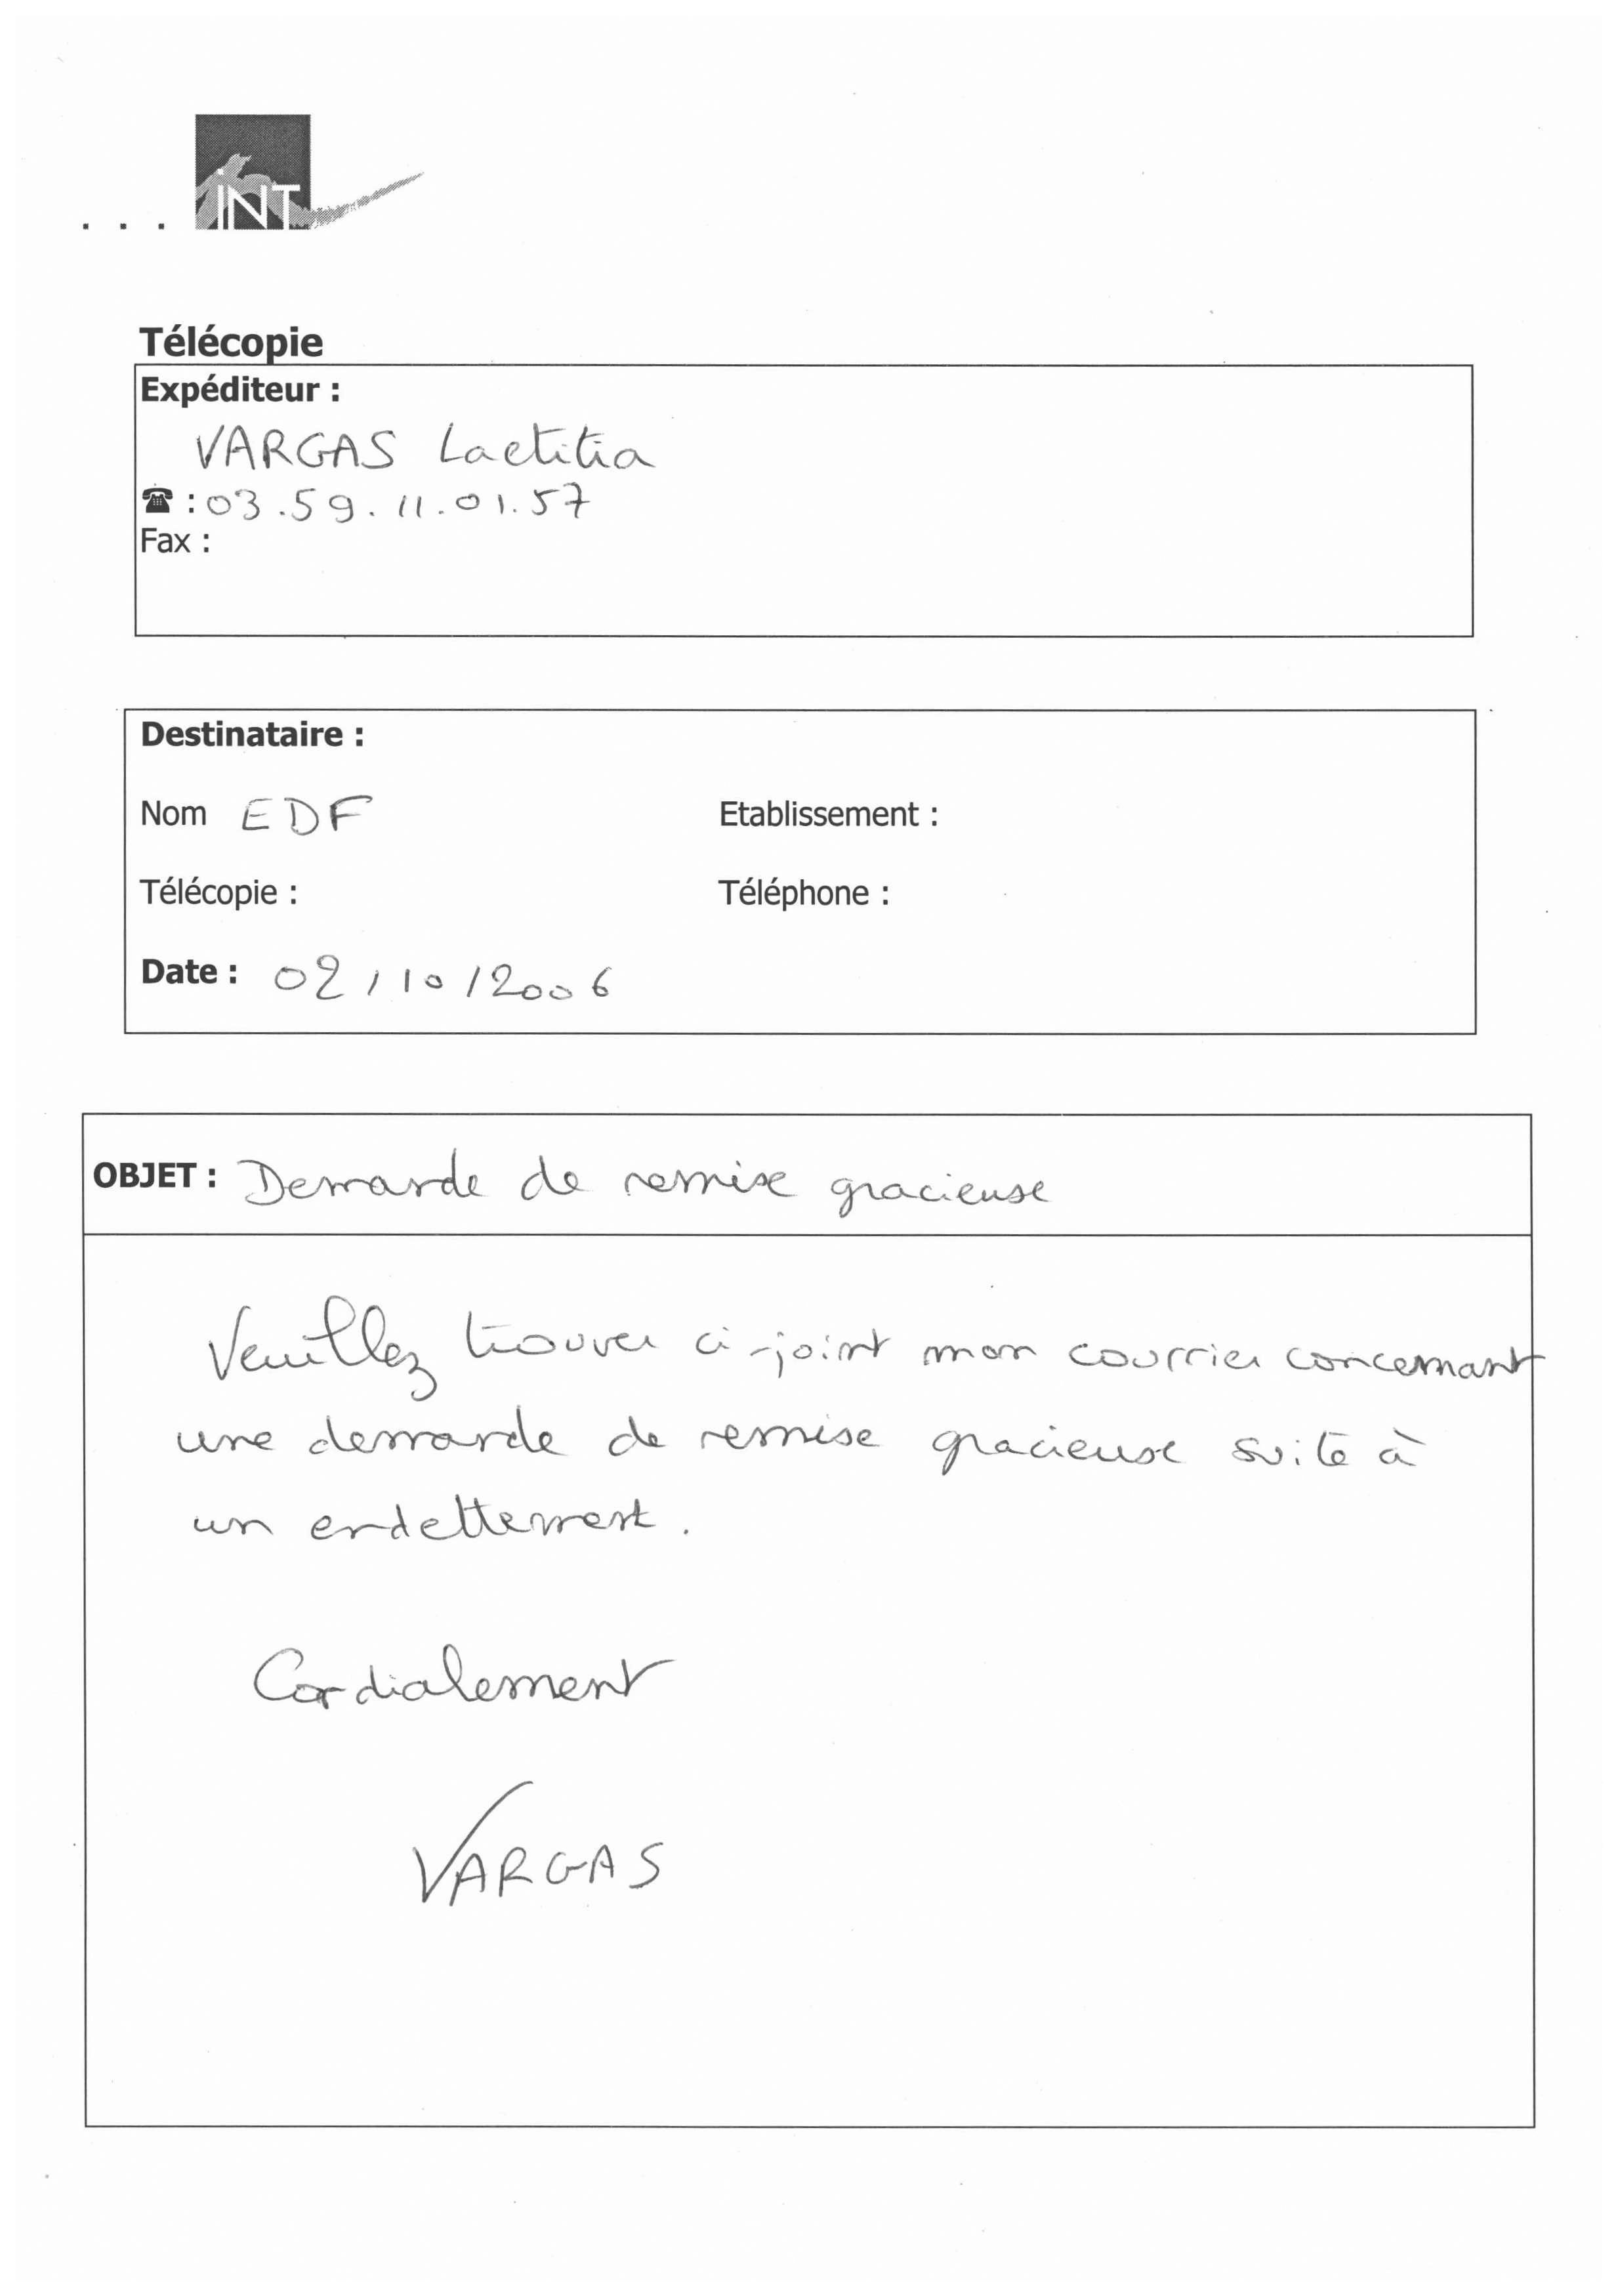 ... iNT
Télécopie
Expéditeur :
VARGAS Laetitia
☎ : 03.59.11.01.57
Fax :
Destinataire :
Nom EDF Etablissement :
Télécopie : Téléphone :
Date : 02/10/2006
OBJET : Demande de remise gracieuse
Veuillez trouver ci-joint mon courrier concernant
une demande de remise gracieuse suite à
un endettement.
Cordialement
VARGAS